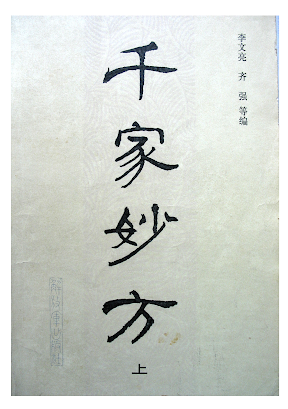 李文亮 齐 强 等编
千家妙方
上